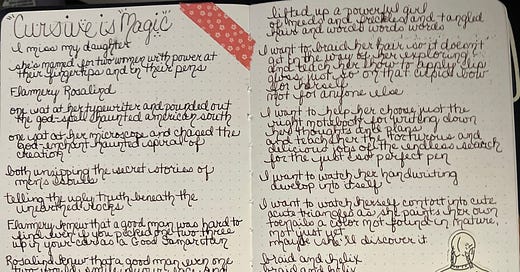 "Cursive is Magic"
I miss my daughter
she's named for two women with power at
their fingertips and in their pens
Flannery Rosalind
one sat at her typewriter and pounded out
the god-spell haunted american south
one sat at her microscope and chased the
god-enchant haunted spiral of
creation
both unzipping the secret stories of
men's souls
telling the ugly truth beneath the
unturned rocks
Flannery knew that a good man was hard to
find even if you picked one two three
up in your car as a Good Samaritan
Rosalind knew that a good man even one
two would smile in your face and
lifted up a powerful girl
of needs and freckles and tangled
hair and words words words
I want to braid her hair so it doesn't
get in the way of her exploring
and teach her how to apply lip
gloss just so on that cupid bow
for herself
not for anyone else
I want to help her choose just the
right notebook for writing down
her thoughts and plans
and teach her the torturous and
delicious joys of the endless search
for the just so perfect pen
I want to watch her handwriting
develop into itself
I want to watch herself contort into cute
acute triangles as she paints her own
toenails a color not found in nature
not just yet
maybe she'll discover it
braid and helix
braid and helix